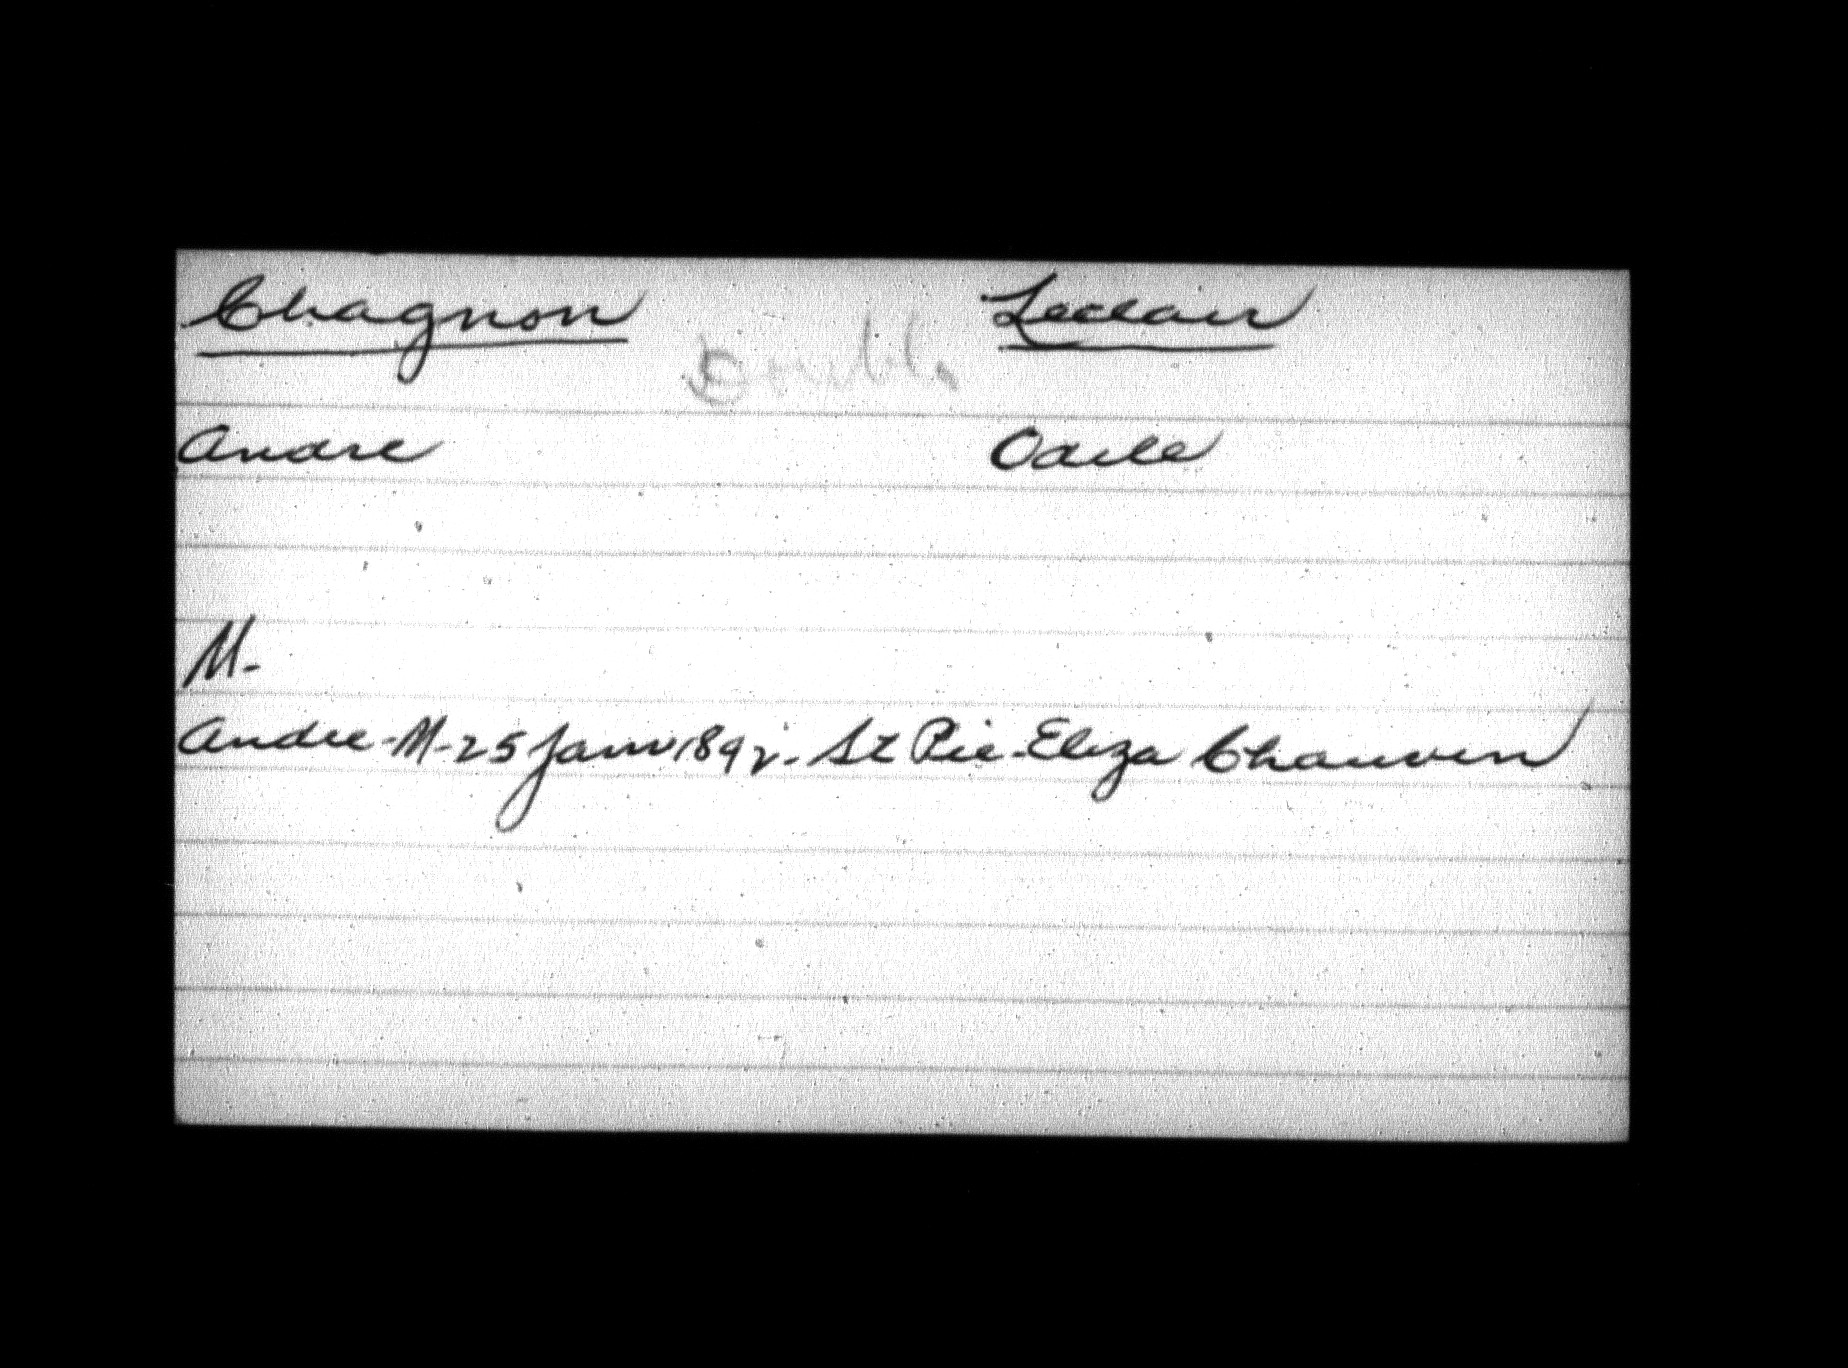 Chagnon Leclair
Double
Andre Odile
M-
Andre-M-25 Janv 1892. St Pie-Eliza Chauvin